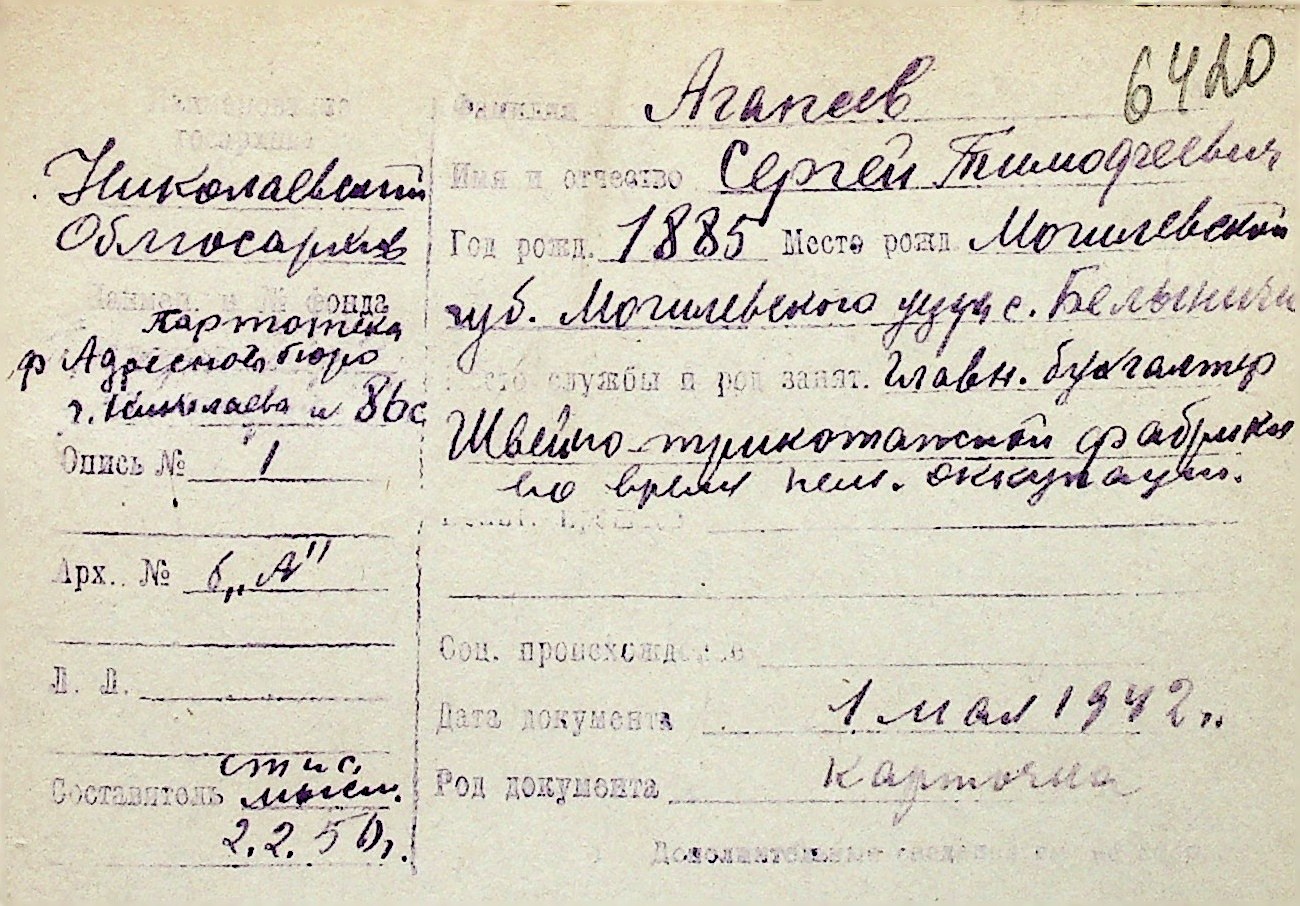 6420
Фамилия Агапеев
Имя и отчество Сергей Тимофеевич
Год рожд. 1885 Место рожд Могилевской
губ. Могилевского уезда с. Белыничи
сто службы и род занят. Главн. бухгалтер
Швейно-трикотажной фабрики
во время нем. оккупации.
Соц. происхождение
Дата документа 1 мая 1942 г.
Род документа карточка
Дополнительные сведения см. на обороте
госархива
Николаевский
Облгосархив
Наимен. и № фонда
картотека
ф Адресного бюро
г. Николаева и 86с
Опись № 1
Арх. № б„А"
Л. Л.
Составитель
2.2.50г.